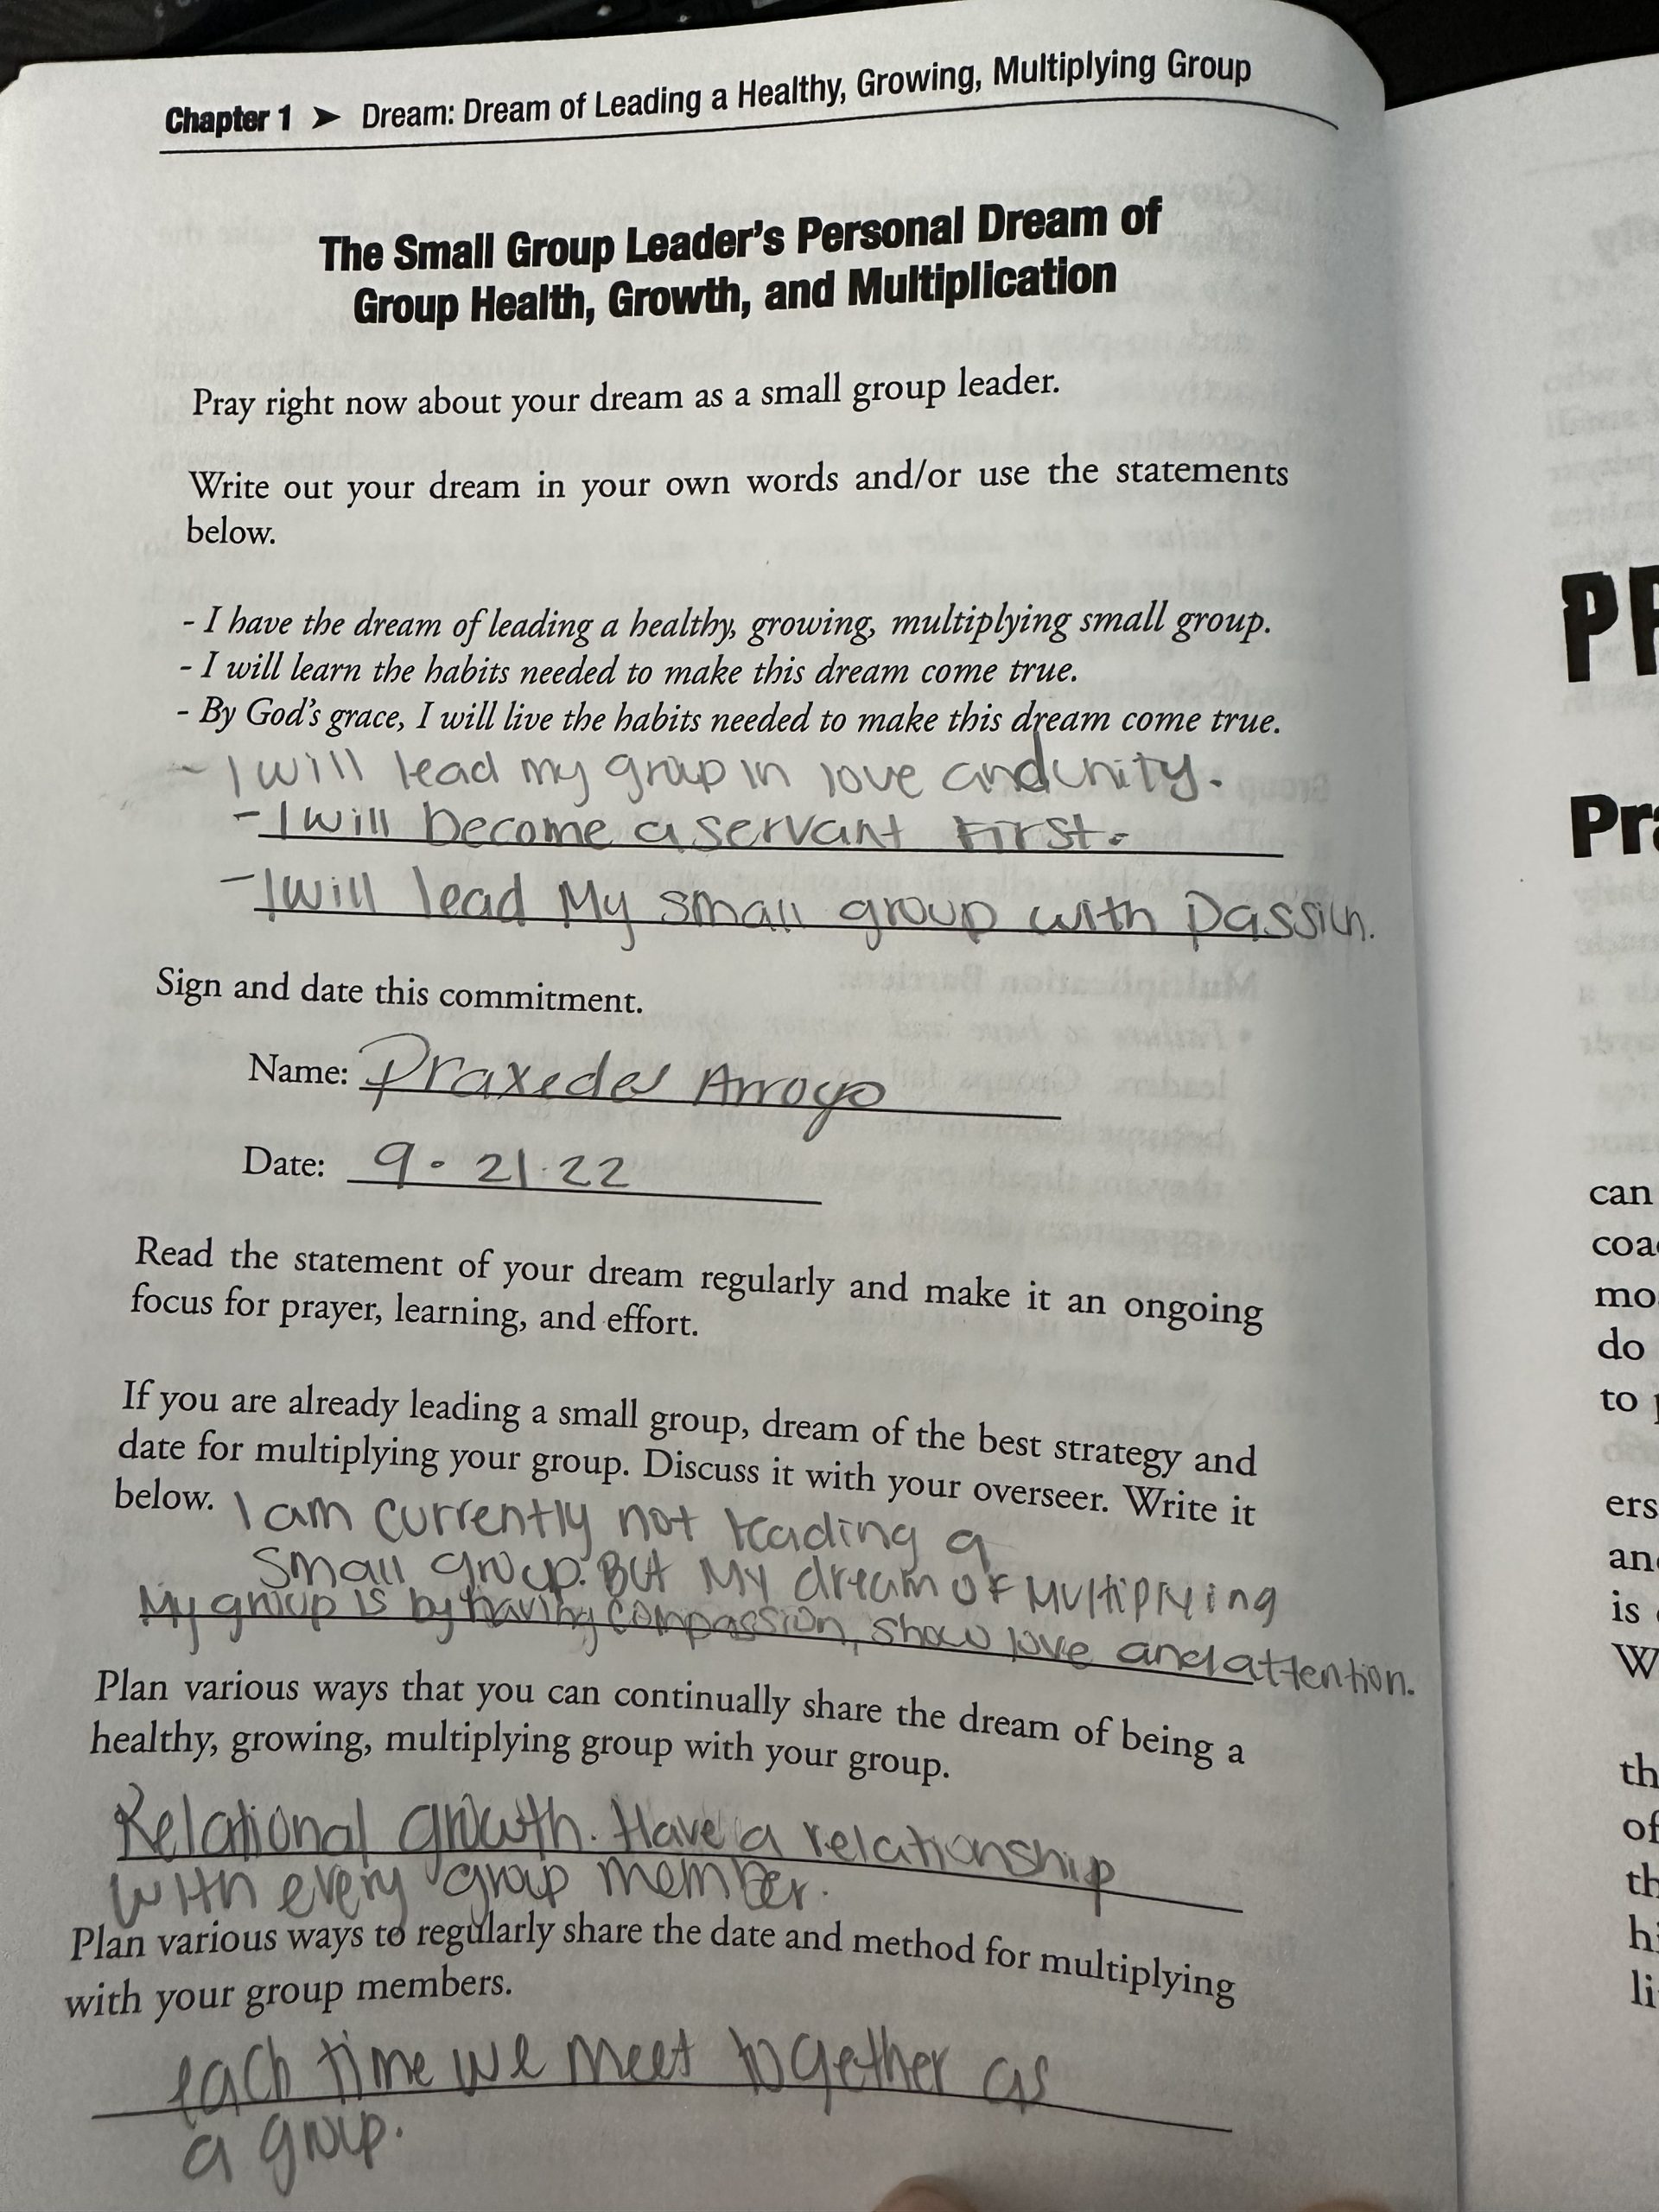 Chapter 1 ➤ Dream: Dream of Leading a Healthy, Growing, Multiplying Group
The Small Group Leader's Personal Dream of
Group Health, Growth, and Multiplication
Pray right now about your dream as a small group leader.
Write out your dream in your own words and/or use the statements
below.
- I have the dream of leading a healthy, growing, multiplying small group.
- I will learn the habits needed to make this dream come true.
- By God's grace, I will live the habits needed to make this dream come true.
- I will lead my group in love and unity.
- I will become a servant First.
- I will lead My small group with Passion.
Sign and date this commitment.
Name: Praxedes Arroyo
Date: 9 . 21 . 22
Read the statement of your dream regularly and make it an ongoing
focus for prayer, learning, and effort.
If you are already leading a small group, dream of the best strategy and
date for multiplying your group. Discuss it with your overseer. Write it
below. I am currently not leading a
Small group. But My dream of Multiplying
My group is by having compassion, show love and attention.
Plan various ways that you can continually share the dream of being a
healthy, growing, multiplying group with your group.
Relational growth. Have a relationship
with every group member.
Plan various ways to regularly share the date and method for multiplying
with your group members.
Each time we meet together as
a group.
PR
Pra
can
coa
mo
do
to
ers
an
is
W
th
of
th
hi
li